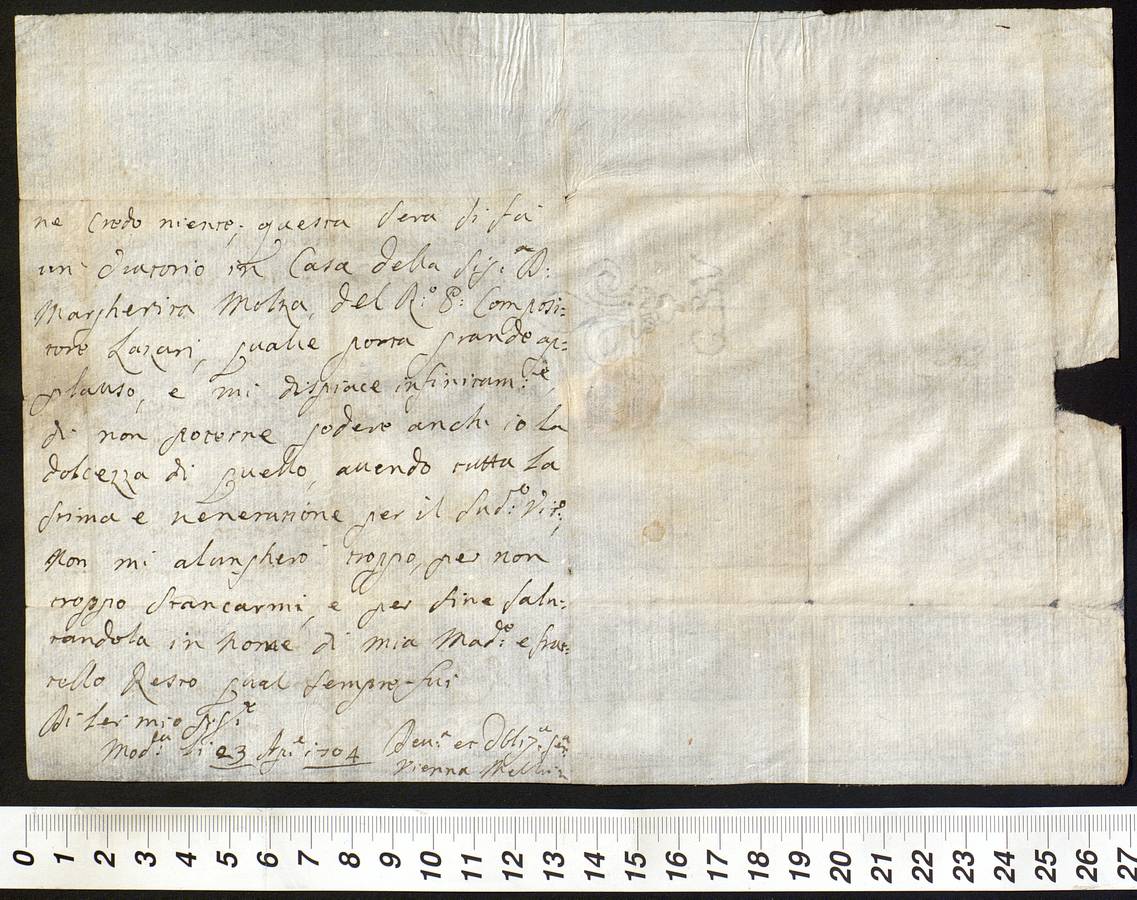 ne Credo niente; questa sera si fà
un' Oratorio in Casa della Sig:ra D:
Margherita Molza, del R:o P: Composi:
tore Lazari, quale porta grande ap:
plauso, e mi dispiace infinitam:te,
di non poterne godere anch' io la
dolcezza di quello, avendo tutta la
stima e venerazione per il Sud:o
Non mi alungherò troppo, per non
troppo stancarmi, e per fine salu:
tandola in nome di mia Mad:e e fra:
tello Resto qual sempre fui
Di Lei mio Sig:re
Mod:na li 23 Apri:e 1704 Dev:a et Oblig:a Ser:a
Vienna Mellini
0 1 2 3 4 5 6 7 8 9 10 11 12 13 14 15 16 17 18 19 20 21 22 23 24 25 26 27